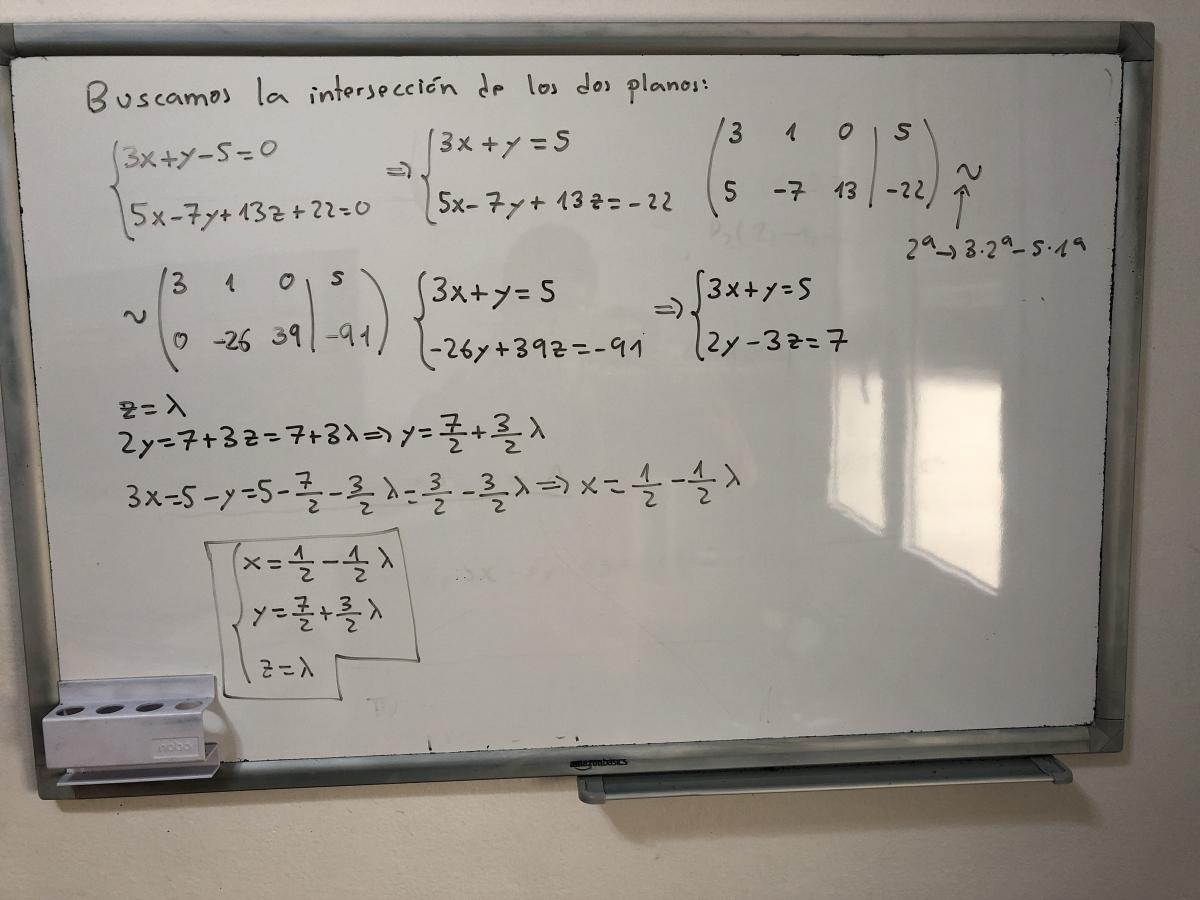 Buscamos la intersección de los dos planos:
{3x+y-5=0 ⇒ {3x+y=5 (3 1 0 | 5)
{5x-7y+13z+22=0 {5x-7y+13z=-22 (5 -7 13 | -22) ~
↑
2ª→3·2ª-5·1ª
~ (3 1 0 | 5) {3x+y=5 ⇒ {3x+y=5
(0 -26 39 | -91) {-26y+39z=-91 {2y-3z=7
z=λ
2y=7+3z=7+3λ⇒y=7/2+3/2 λ
3x=5-y=5-7/2-3/2 λ=3/2-3/2 λ⇒x=1/2-1/2 λ
{x=1/2-1/2 λ
y=7/2+3/2 λ
z=λ
nobo
amazonbasics